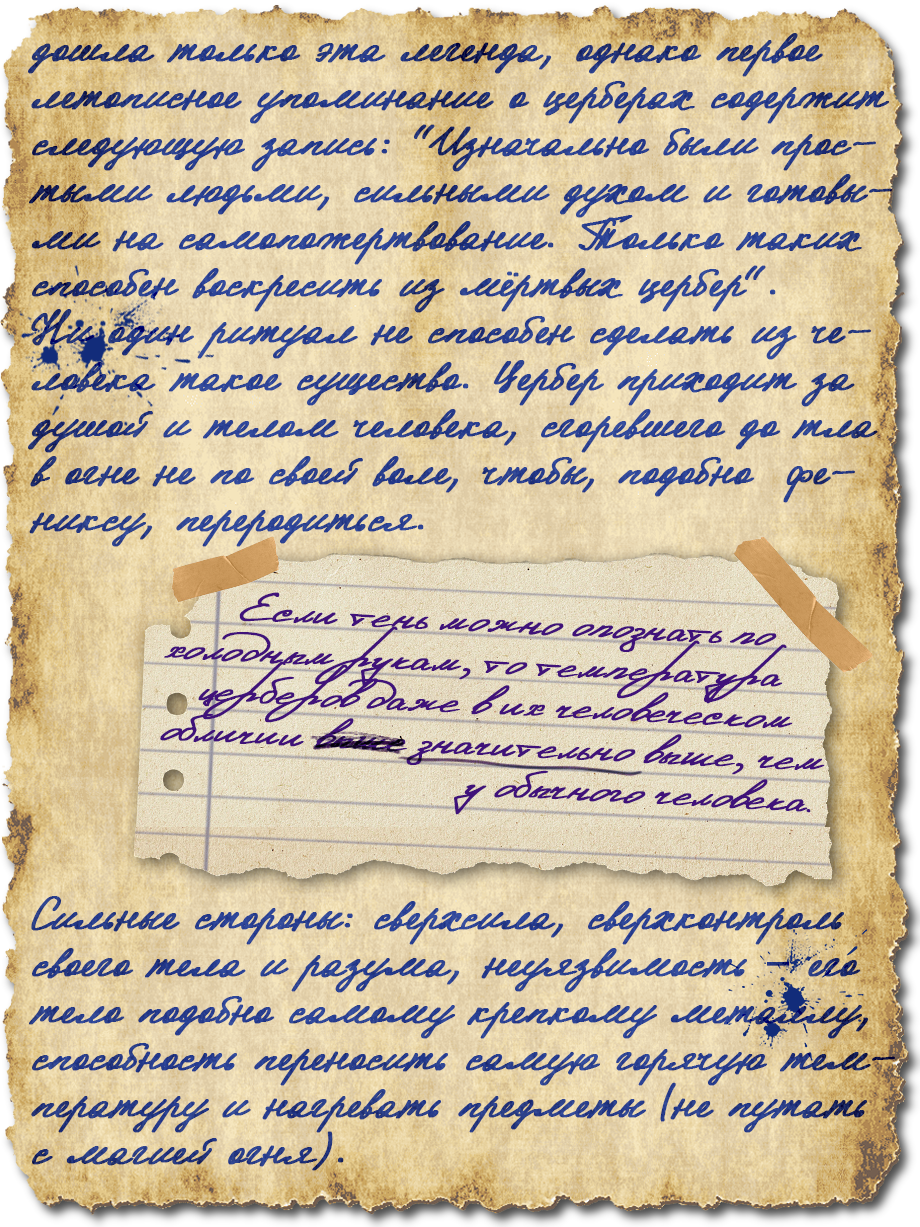 дошла только эта легенда, однако первое
летописное упоминание о церберах содержит
следующую запись: "Изначально были прос-
тыми людьми, сильными духом и готовы-
ми на самопожертвование. Только таких
способен воскресить из мёртвых цербер".
Ни один ритуал не способен сделать из че-
ловека такое существо. Цербер приходит за
душой и телом человека, сгоревшего до тла
в огне не по своей воле, чтобы, подобно фе-
никсу, переродиться.
Если тень можно опознать по
холодным рукам, то температура
церберов даже в их человеческом
обличии выше значительно выше, чем
у обычного человека.
Сильные стороны: сверхсила, сверхконтроль
своего тела и разума, неуязвимость - его
тело подобно самому крепкому металлу,
способность переносить самую горячую тем-
пературу и нагревать предметы (не путать
с магией огня).